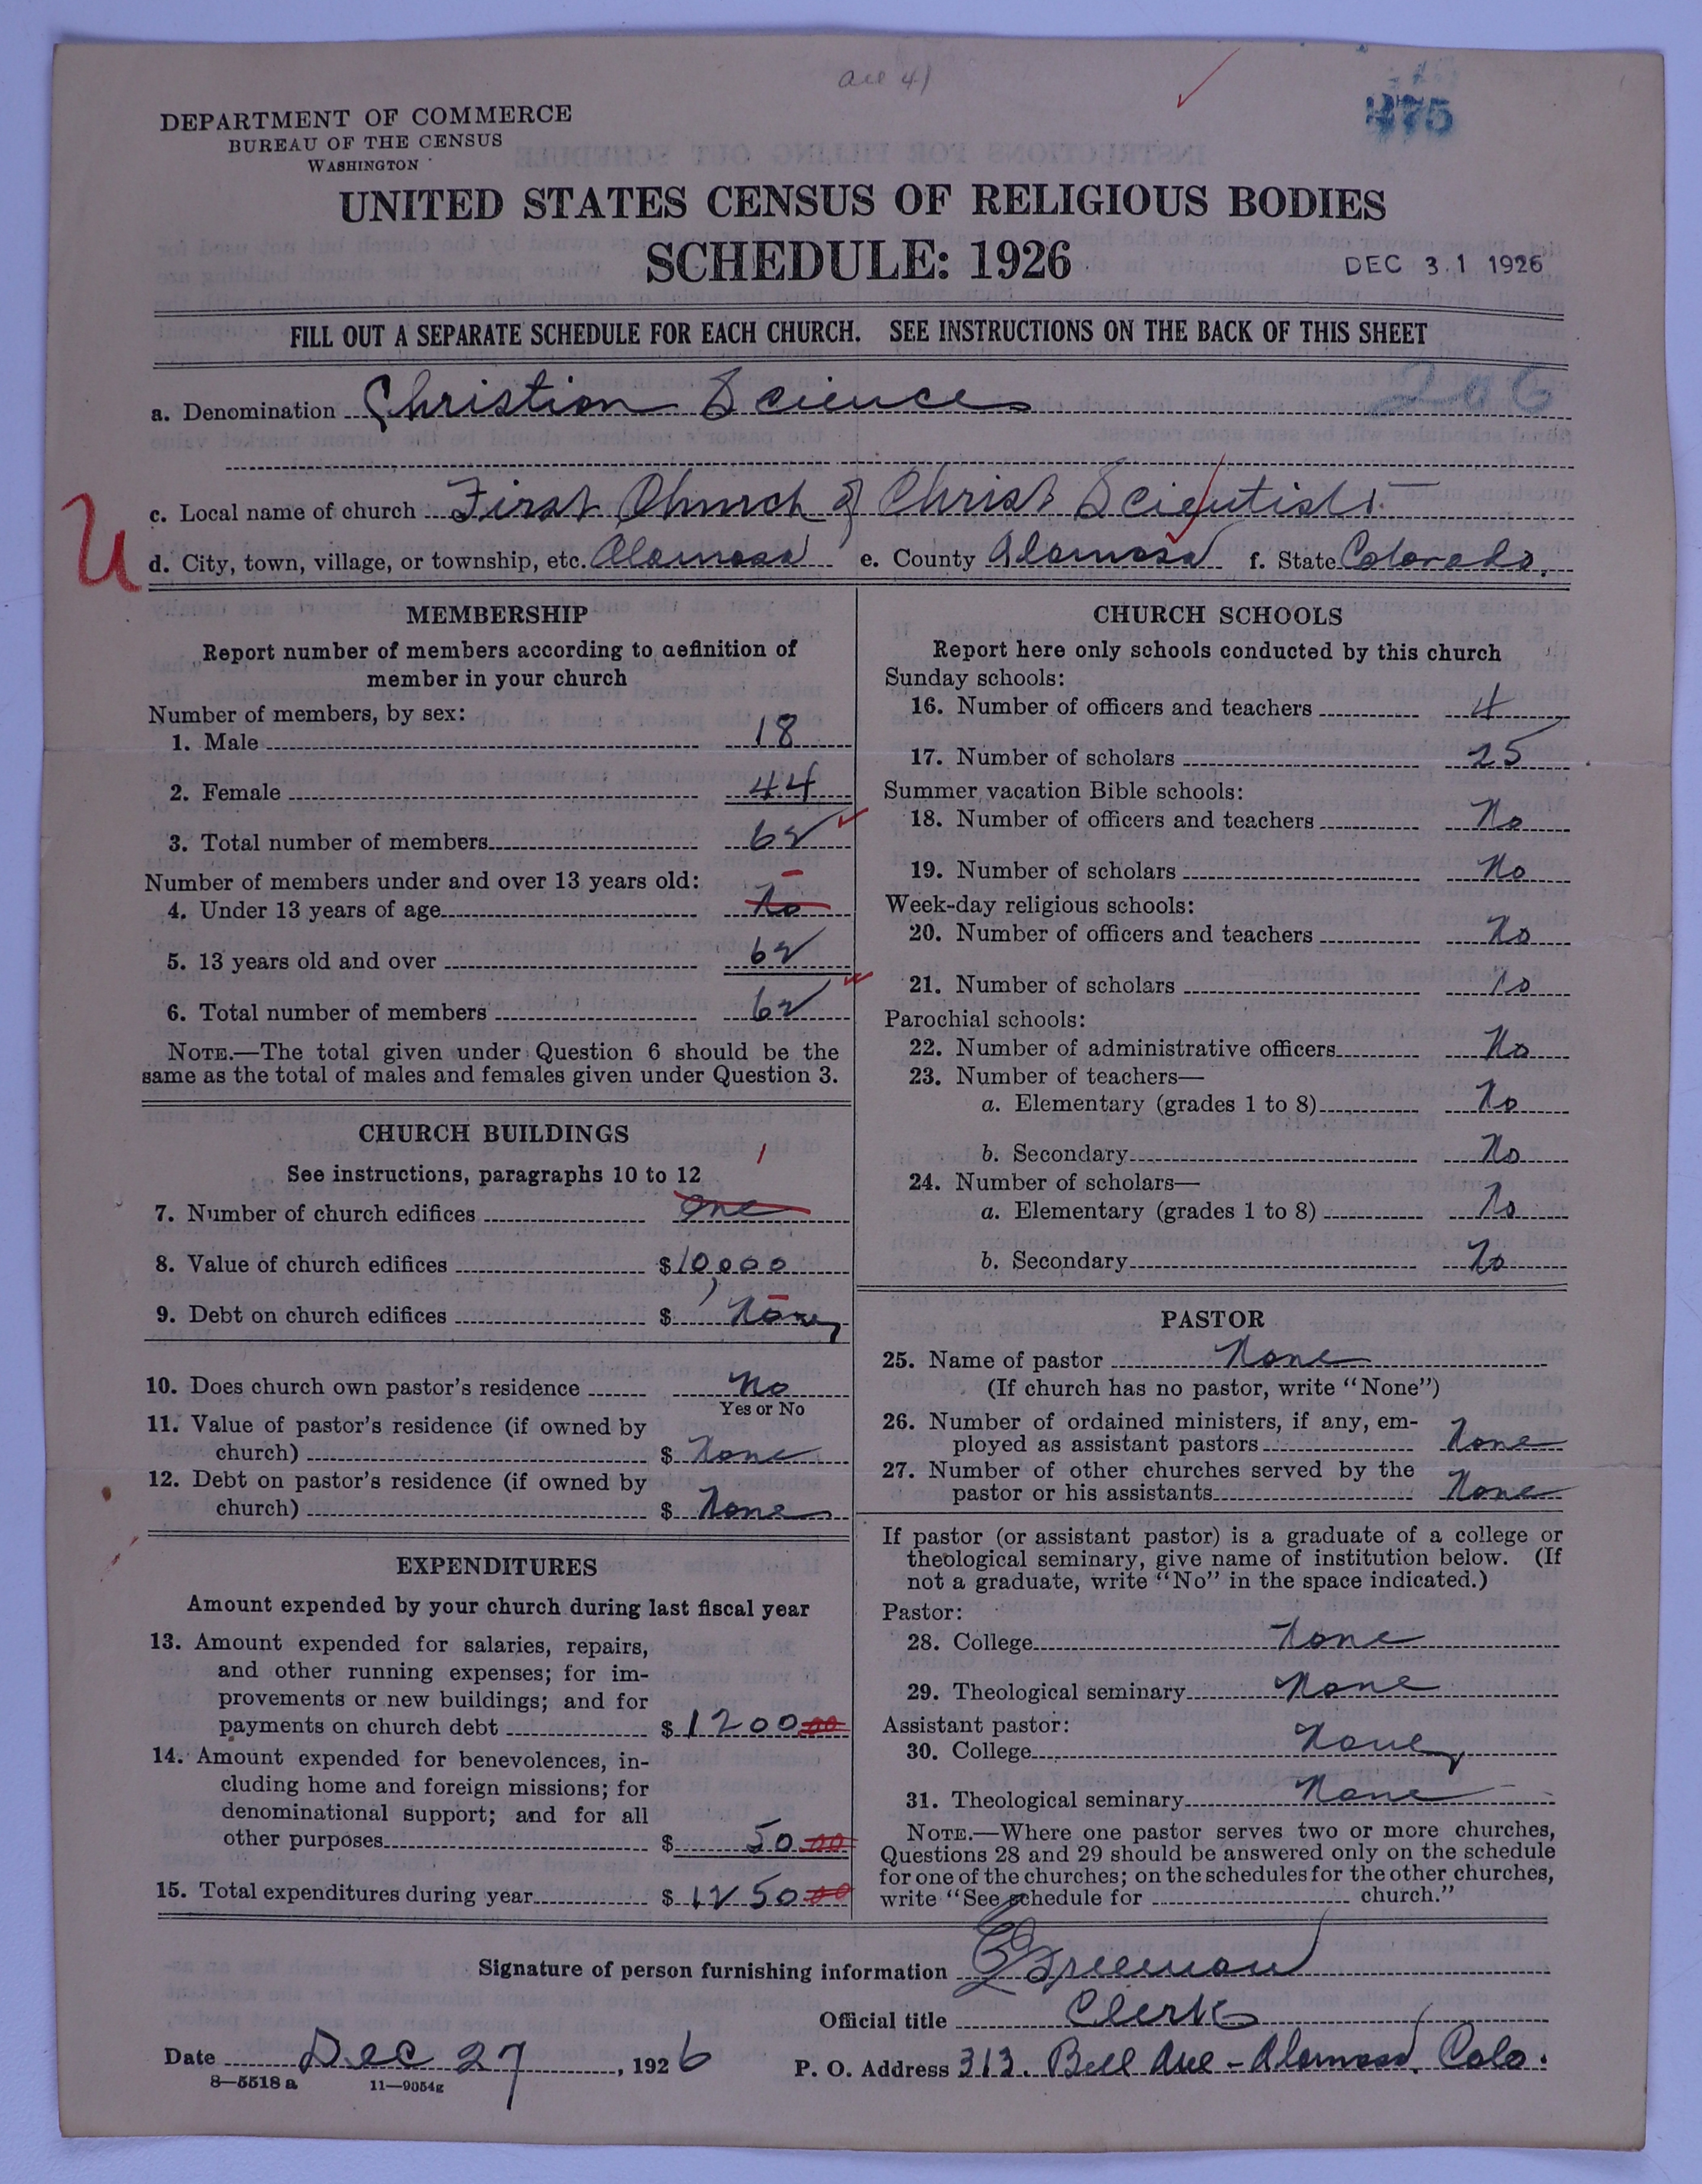 ace 41
375
DEPARTMENT OF COMMERCE
BUREAU OF THE CENSUS
WASHINGTON
UNITED STATES CENSUS OF RELIGIOUS BODIES
SCHEDULE: 1926
DEC 31 1926
FILL OUT A SEPARATE SCHEDULE FOR EACH CHURCH. SEE INSTRUCTIONS ON THE BACK OF THIS SHEET
206
a. Denomination Christian Science
U
c. Local name of church First Church of Christ Scientist
d. City, town, village, or township, etc. Alamosa e. County Alamosa f. State Colorado.
MEMBERSHIP
Report number of members according to definition of
member in your church
Number of members, by sex:
1. Male 18
2. Female 44
3. Total number of members 62
Number of members under and over 13 years old:
4. Under 13 years of age No
5. 13 years old and over 62
6. Total number of members 62
NOTE.—The total given under Question 6 should be the
same as the total of males and females given under Question 3.
CHURCH BUILDINGS
See instructions, paragraphs 10 to 12
1
7. Number of church edifices One
8. Value of church edifices $ 10,000
9. Debt on church edifices $ None
10. Does church own pastor's residence No
Yes or No
11. Value of pastor's residence (if owned by
church) $ None
12. Debt on pastor's residence (if owned by
church) $ None
EXPENDITURES
Amount expended by your church during last fiscal year
13. Amount expended for salaries, repairs,
and other running expenses; for im-
provements or new buildings; and for
payments on church debt $ 1200 00
14. Amount expended for benevolences, in-
cluding home and foreign missions; for
denominational support; and for all
other purposes $ 50 00
15. Total expenditures during year $ 1250 00
CHURCH SCHOOLS
Report here only schools conducted by this church
Sunday schools:
16. Number of officers and teachers 4
17. Number of scholars 25
Summer vacation Bible schools:
18. Number of officers and teachers No
19. Number of scholars No
Week-day religious schools:
20. Number of officers and teachers No
21. Number of scholars No
Parochial schools:
22. Number of administrative officers No
23. Number of teachers—
a. Elementary (grades 1 to 8) No
b. Secondary No
24. Number of scholars—
a. Elementary (grades 1 to 8) No
b. Secondary No
PASTOR
25. Name of pastor None
(If church has no pastor, write "None")
26. Number of ordained ministers, if any, em-
ployed as assistant pastors None
27. Number of other churches served by the
pastor or his assistants None
If pastor (or assistant pastor) is a graduate of a college or
theological seminary, give name of institution below. (If
not a graduate, write "No" in the space indicated.)
Pastor:
28. College None
29. Theological seminary None
Assistant pastor:
30. College None
31. Theological seminary None
NOTE.—Where one pastor serves two or more churches,
Questions 28 and 29 should be answered only on the schedule
for one of the churches; on the schedules for the other churches,
write "See schedule for church."
Signature of person furnishing information Freeman
Official title Clerk
Date Dec 27, 1926
P. O. Address 313. Bell Ave - Alamosa, Colo.
8—5518 a 11—9054g